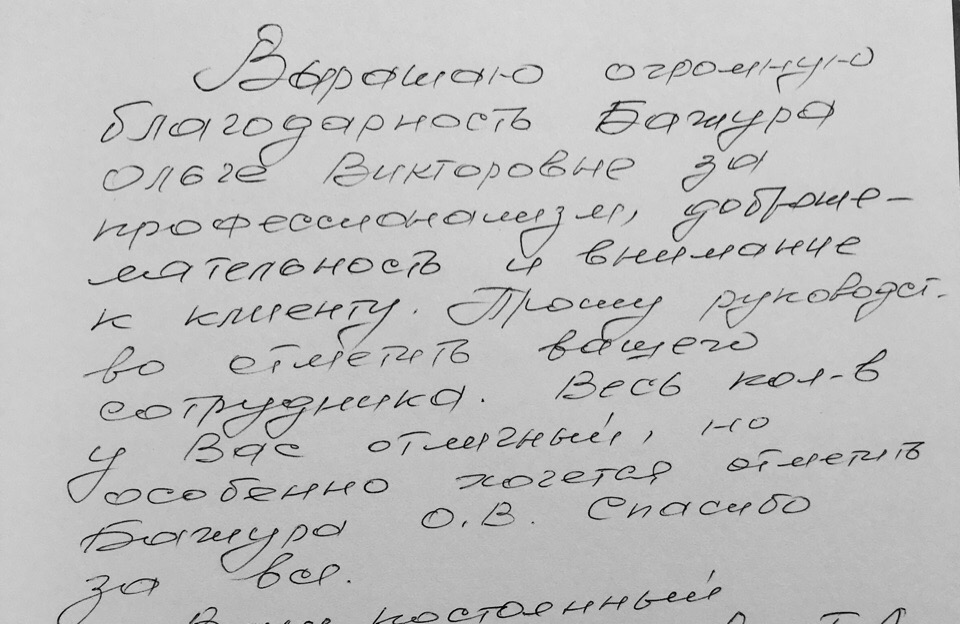 Выражаю огромную
благодарность Бажура
Ольге Викторовне за
профессионализм, доброже-
лательность и внимание
к клиенту. Прошу руководст.
во отметить вашего
сотрудника. Весь кол-в
у Вас отличный, но
особенно хочется отметить
Бажура О.В. Спасибо
за все.
постоянный